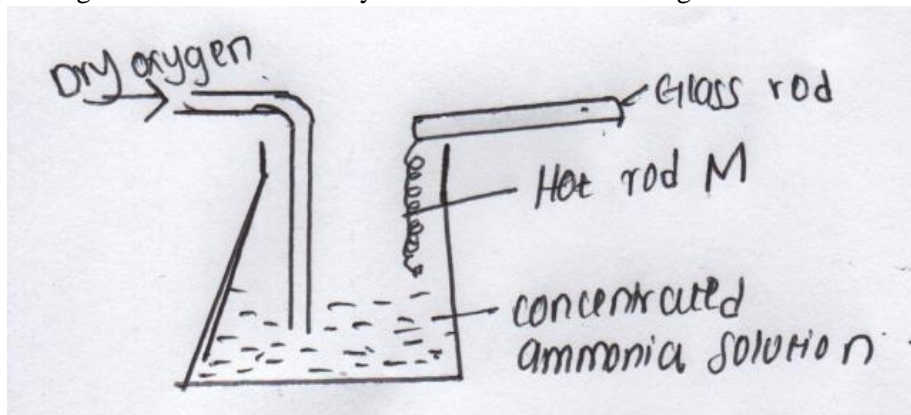 Dry oxygen
Glass rod
Hot rod M
concentrated
ammonia solution